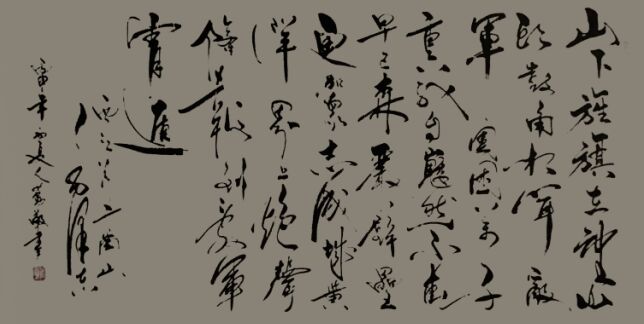 山下旌旗在望山
头鼓角相闻敵
軍圍困万千
重我自巋然不動
早已森嚴壁壘
更加眾志成城黄
洋界上炮聲
隆报道敵軍
宵遁
西江月井岡山
毛泽东
年書